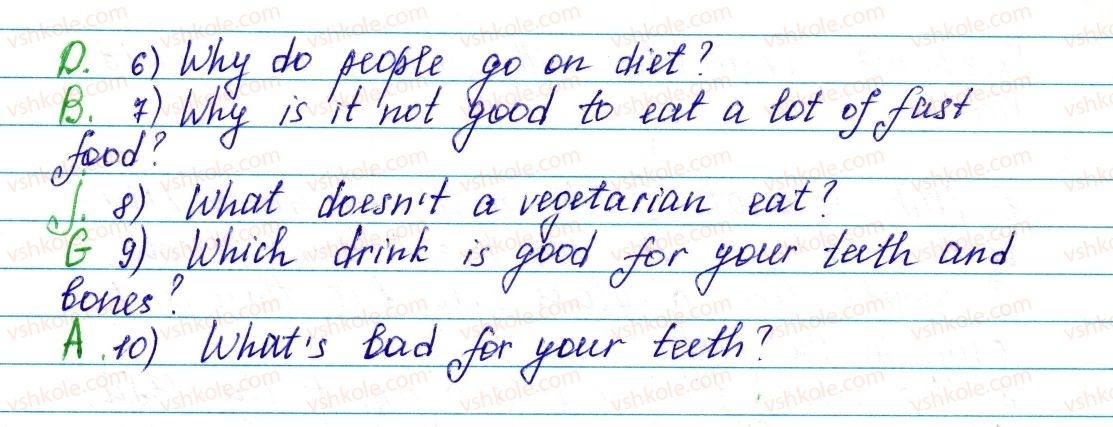 D. 6) Why do people go on diet?
B. 7) Why is it not good to eat a lot of fast
food?
J. 8) What doesn't a vegetarian eat?
G 9) Which drink is good for your teeth and
bones?
A. 10) What's bad for your teeth?